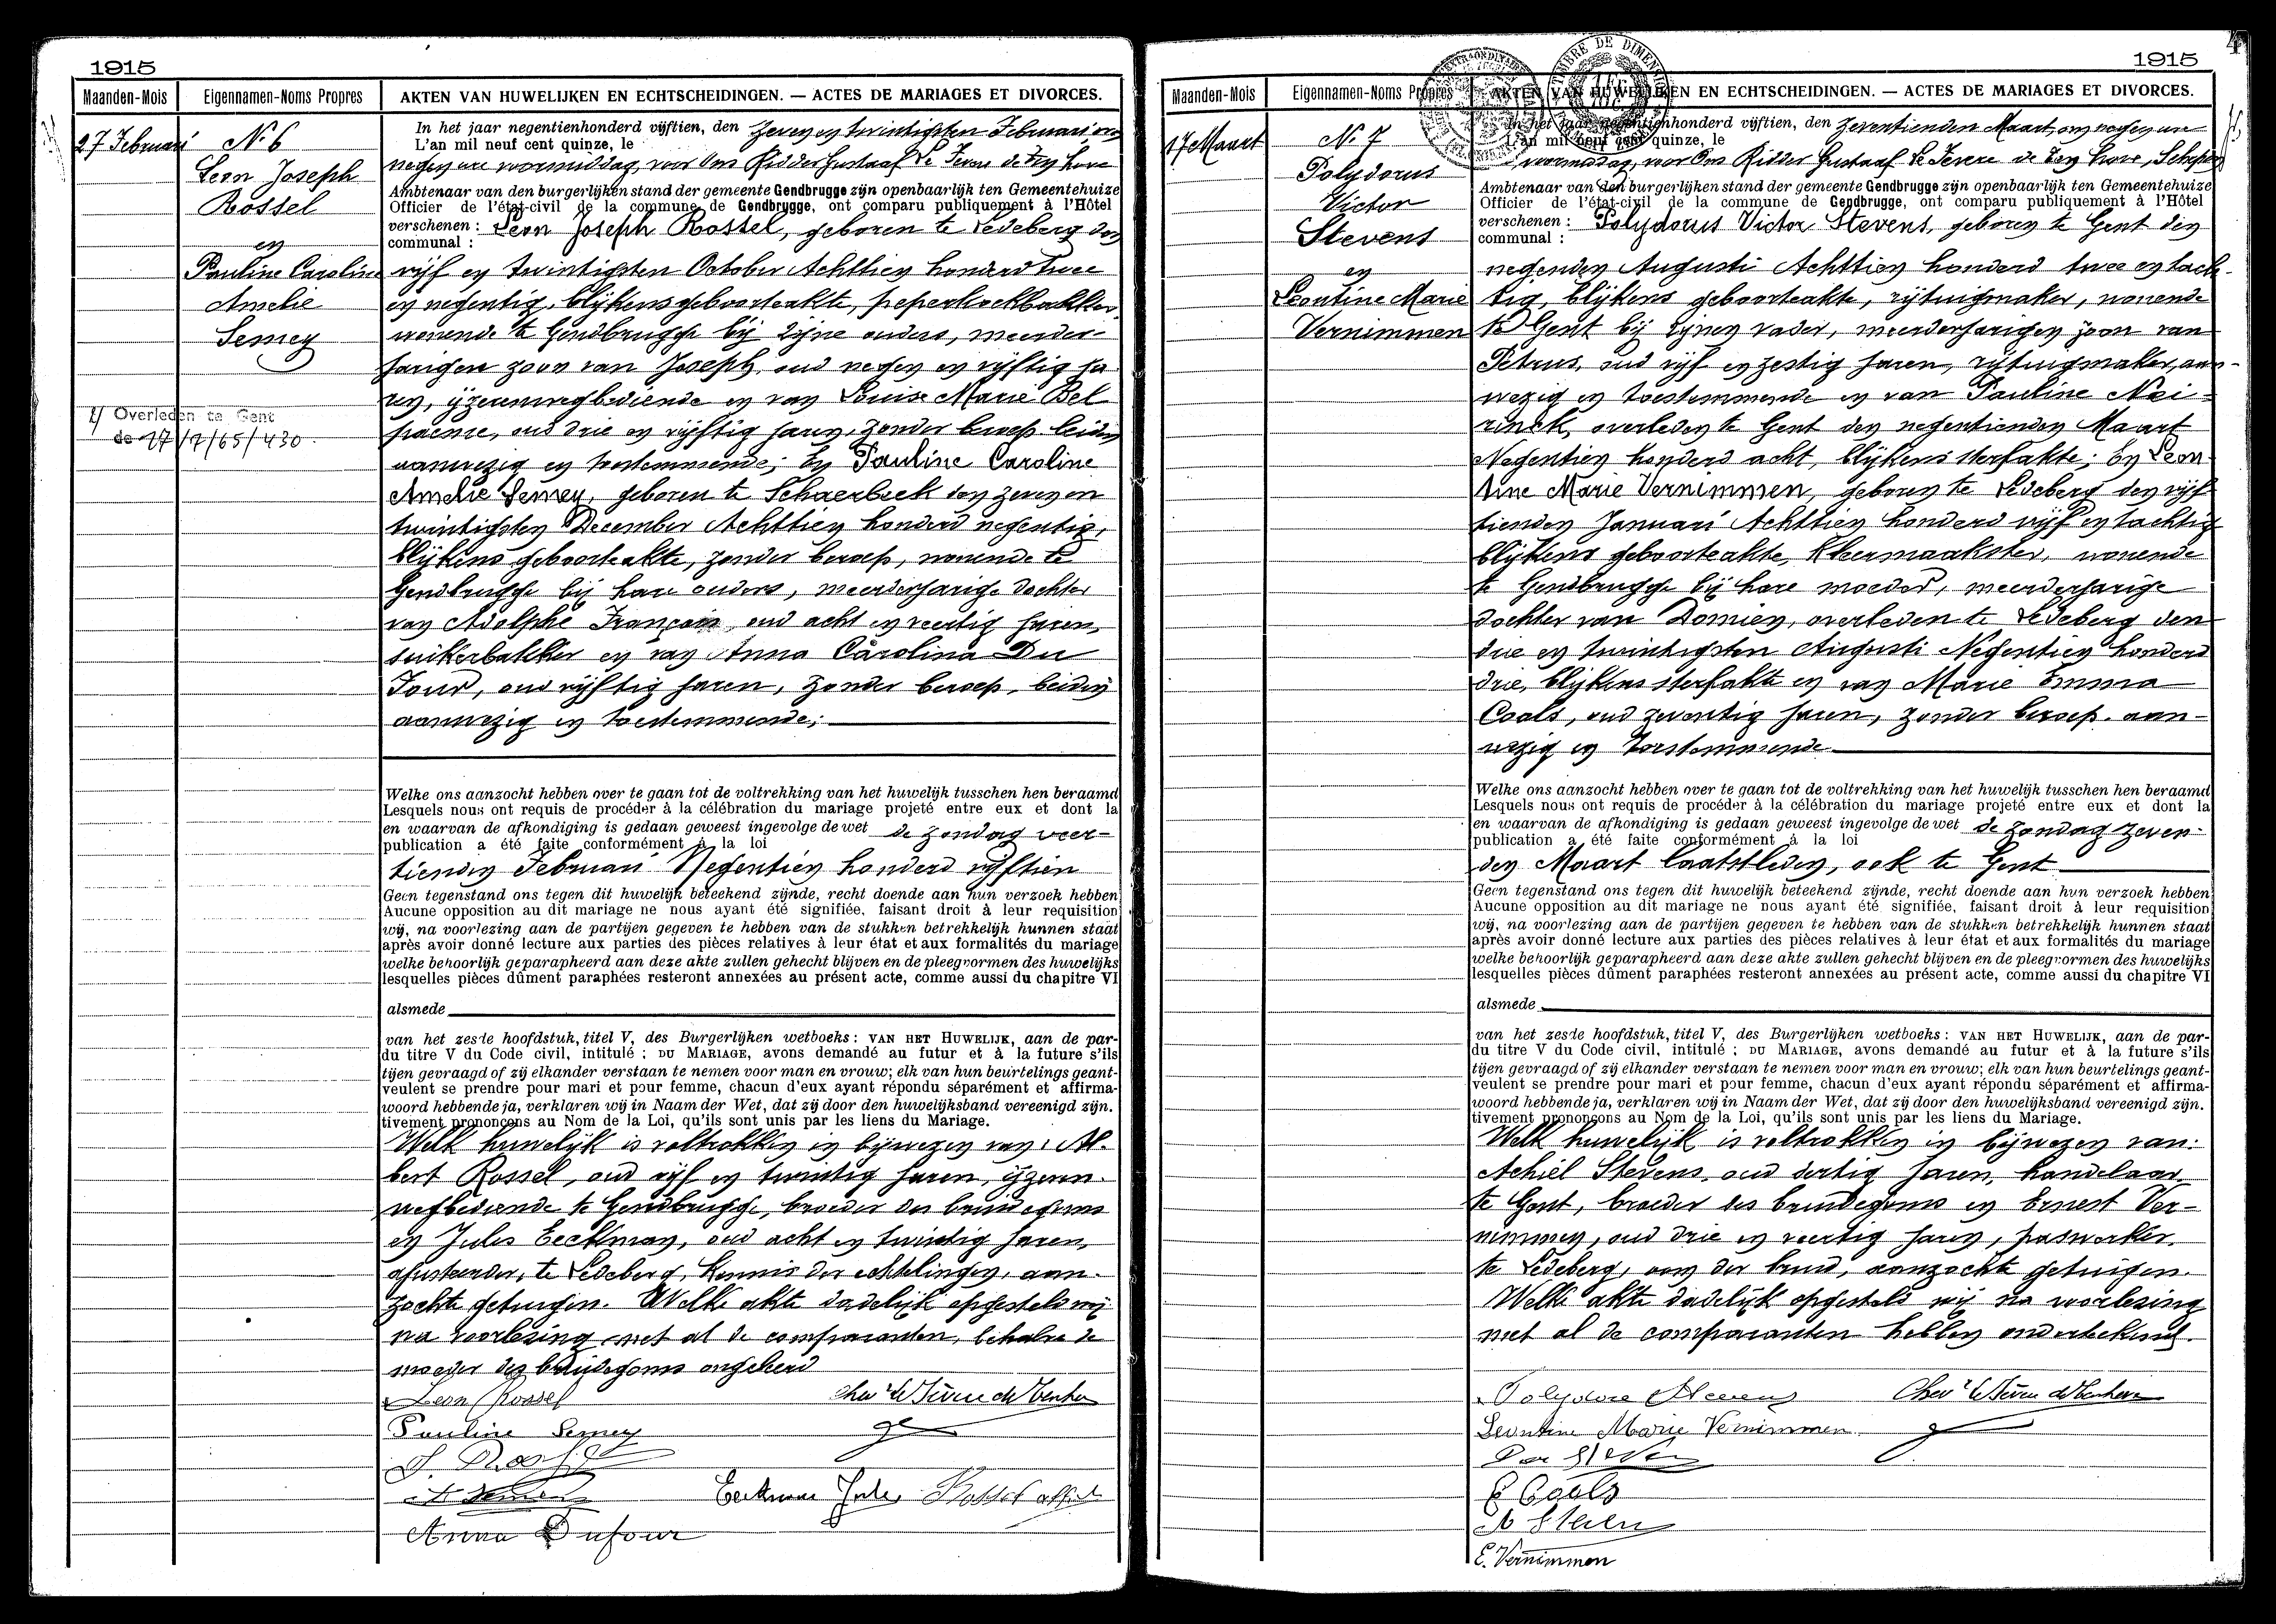 1915
Maanden-Mois
Eigennamen-Noms Propres
AKTEN VAN HUWELIJKEN EN ECHTSCHEIDINGEN. — ACTES DE MARIAGES ET DIVORCES.
27 Februari
N° 6
Leon Joseph
Rossel
en
Pauline Caroline
Amelie
Semey
Overleden te Gent
de 27/7/65/430
In het jaar negentienhonderd vijftien, den Zeven en twintigsten Februari om
L'an mil neuf cent quinze, le
negen ure voormiddag, voor Ons Ridder Gustaaf Le Fevere de Ten Hove
Ambtenaar van den burgerlijken stand der gemeente Gendbrugge zijn openbaarlijk ten Gemeentehuize
Officier de l'état-civil de la commune de Gendbrygge, ont comparu publiquement à l'Hôtel
verschenen : Leon Joseph Rossel, geboren te Ledeberg den
communal :
vijf en twintigsten October Achttien honderd twee
en negentig, blijkens geboorteakte, peperkoekbakker,
wonende te Gendbrugge bij zijne ouders, meerder-
jarigen zoon van Joseph, oud negen en vijftig ja
ren, ijzerenwegbediende en van Louise Marie Bel
paeme, oud drie en vijftig jaren, zonder beroep beiden
aanwezig en toestemmende; En Pauline Caroline
Amelie Semey, geboren te Schaerbeek den zeven en
twintigsten December Achttien honderd negentig,
blijkens geboorteakte, zonder beroep, wonende te
Gendbrugge bij hare ouders, meerderjarige dochter
van Adolphe François, oud acht en veertig jaren,
suikerbakker en van Anna Carolina Du
Four, oud vijftig jaren, zonder beroep, beiden
aanwezig en toestemmende;
Welke ons aanzocht hebben over te gaan tot de voltrekking van het huwelijk tusschen hen beraamd
Lesquels nous ont requis de procéder à la célébration du mariage projeté entre eux et dont la
en waarvan de afkondiging is gedaan geweest ingevolge de wet de zondag veer-
publication a été faite conformément à la loi
tienden Februari Negentien honderd vijftien
Geen tegenstand ons tegen dit huwelijk beteekend zijnde, recht doende aan hun verzoek hebben
Aucune opposition au dit mariage ne nous ayant été signifiée, faisant droit à leur requisition
wij, na voorlezing aan de partijen gegeven te hebben van de stukken betrekkelijk hunnen staat
après avoir donné lecture aux parties des pièces relatives à leur état et aux formalités du mariage
welke behoorlijk geparapheerd aan deze akte zullen gehecht blijven en de pleegvormen des huwelijks
lesquelles pièces dûment paraphées resteront annexées au présent acte, comme aussi du chapitre VI
alsmede
van het zesde hoofdstuk, titel V, des Burgerlijken wetboeks : VAN HET HUWELIJK, aan de par-
du titre V du Code civil, intitulé : DU MARIAGE, avons demandé au futur et à la future s'ils
tijen gevraagd of zij elkander verstaan te nemen voor man en vrouw; elk van hun beurtelings geant-
veulent se prendre pour mari et pour femme, chacun d'eux ayant répondu séparément et affirma-
woord hebbende ja, verklaren wij in Naam der Wet, dat zij door den huwelijksband vereenigd zijn.
tivement prononçons au Nom de la Loi, qu'ils sont unis par les liens du Mariage.
Welk huwelijk is voltrokken in bijwezen van: Al-
bert Rossel, oud vijf en twintig jaren, ijzeren-
wegbediende te Gendbrugge, broeder des bruidegoms
en Jules Eeckman, oud acht en twintig jaren,
ajusteerder, te Ledeberg, kennis der echtelingen, aan-
zochte getuigen. Welke akte dadelijk opgesteld wij
na voorlezing met al de comparanten, behalve de
moeder des bruidegoms ongeleerd
Leon Rossel
Chevr Le Fevere de Tenhove
Pauline Semey
J. Rossel
A Semey
Eeckman Jules Rossel albert
Anna Dufour
4
1915
Maanden-Mois
Eigennamen-Noms Propres
AKTEN VAN HUWELIJKEN EN ECHTSCHEIDINGEN. — ACTES DE MARIAGES ET DIVORCES.
TIMBRE DE DIMENSION
1 FR.
17 Maart
N° 7
Polydorus
Victor
Stevens
en
Leontine Marie
Vernimmen
In het jaar negentienhonderd vijftien, den Zeventienden Maart, om negen ure
L'an mil neuf cent quinze, le
voormiddag, voor Ons Ridder Gustaaf Le Fevere de Ten Hove, Schepen
Ambtenaar van den burgerlijken stand der gemeente Gendbrugge zijn openbaarlijk ten Gemeentehuize
Officier de l'état-civil de la commune de Gendbrygge, ont comparu publiquement à l'Hôtel
verschenen : Polydorus Victor Stevens, geboren te Gent den
communal :
negenden Augusti Achttien honderd twee en tach-
tig, blijkens geboorteakte, rijtuigmaker, wonende
te Gent bij zijnen vader, meerderjarigen zoon van
Petrus, oud vijf en zestig jaren, rijtuigmaker, aan-
wezig en toestemmende en van Pauline Nei-
rinck, overleden te Gent den negentienden Maart
Negentien honderd acht, blijkens sterfakte; En Leon
tine Marie Vernimmen, geboren te Ledeberg den vijf
tienden Januari Achttien honderd vijf en tachtig
blijkens geboorteakte, kleermaakster, wonende
te Gendbrugge bij hare moeder, meerderjarige
dochter van Domien, overleden te Ledeberg den
drie en twintigsten Augusti Negentien honderd
drie, blijkens sterfakte en van Marie Emma
Cools, oud zeventig jaren, zonder beroep. aan-
wezig en toestemmende
Welke ons aanzocht hebben over te gaan tot de voltrekking van het huwelijk tusschen hen beraamd
Lesquels nous ont requis de procéder à la célébration du mariage projeté entre eux et dont la
en waarvan de afkondiging is gedaan geweest ingevolge de wet de zondag zeven-
publication a été faite conformément à la loi
den Maart laatstleden, ook te Gent
Geen tegenstand ons tegen dit huwelijk beteekend zijnde, recht doende aan hun verzoek hebben
Aucune opposition au dit mariage ne nous ayant été signifiée, faisant droit à leur requisition
wij, na voorlezing aan de partijen gegeven te hebben van de stukken betrekkelijk hunnen staat
après avoir donné lecture aux parties des pièces relatives à leur état et aux formalités du mariage
welke behoorlijk geparapheerd aan deze akte zullen gehecht blijven en de pleegvormen des huwelijks
lesquelles pièces dûment paraphées resteront annexées au présent acte, comme aussi du chapitre VI
alsmede
van het zesde hoofdstuk, titel V, des Burgerlijken wetboeks : VAN HET HUWELIJK, aan de par-
du titre V du Code civil, intitulé : DU MARIAGE, avons demandé au futur et à la future s'ils
tijen gevraagd of zij elkander verstaan te nemen voor man en vrouw; elk van hun beurtelings geant-
veulent se prendre pour mari et pour femme, chacun d'eux ayant répondu séparément et affirma-
woord hebbende ja, verklaren wij in Naam der Wet, dat zij door den huwelijksband vereenigd zijn.
tivement prononçons au Nom de la Loi, qu'ils sont unis par les liens du Mariage.
Welk huwelijk is voltrokken in bijwezen van:
Achiel Stevens, oud dertig jaren, handelaar
te Gent, broeder des bruidegoms en Ernest Ver-
nimmen, oud drie en veertig jaren, paswerker,
te Ledeberg, oom der bruid, aanzochte getuigen.
Welke akte dadelijk opgesteld wij na voorlezing
met al de comparanten hebben onderteekend.
Polydore Stevens
Chevr Le Fevere de Tenhove
Leontine Marie Vernimmen
E Cools
A Steven
E. Vernimmen